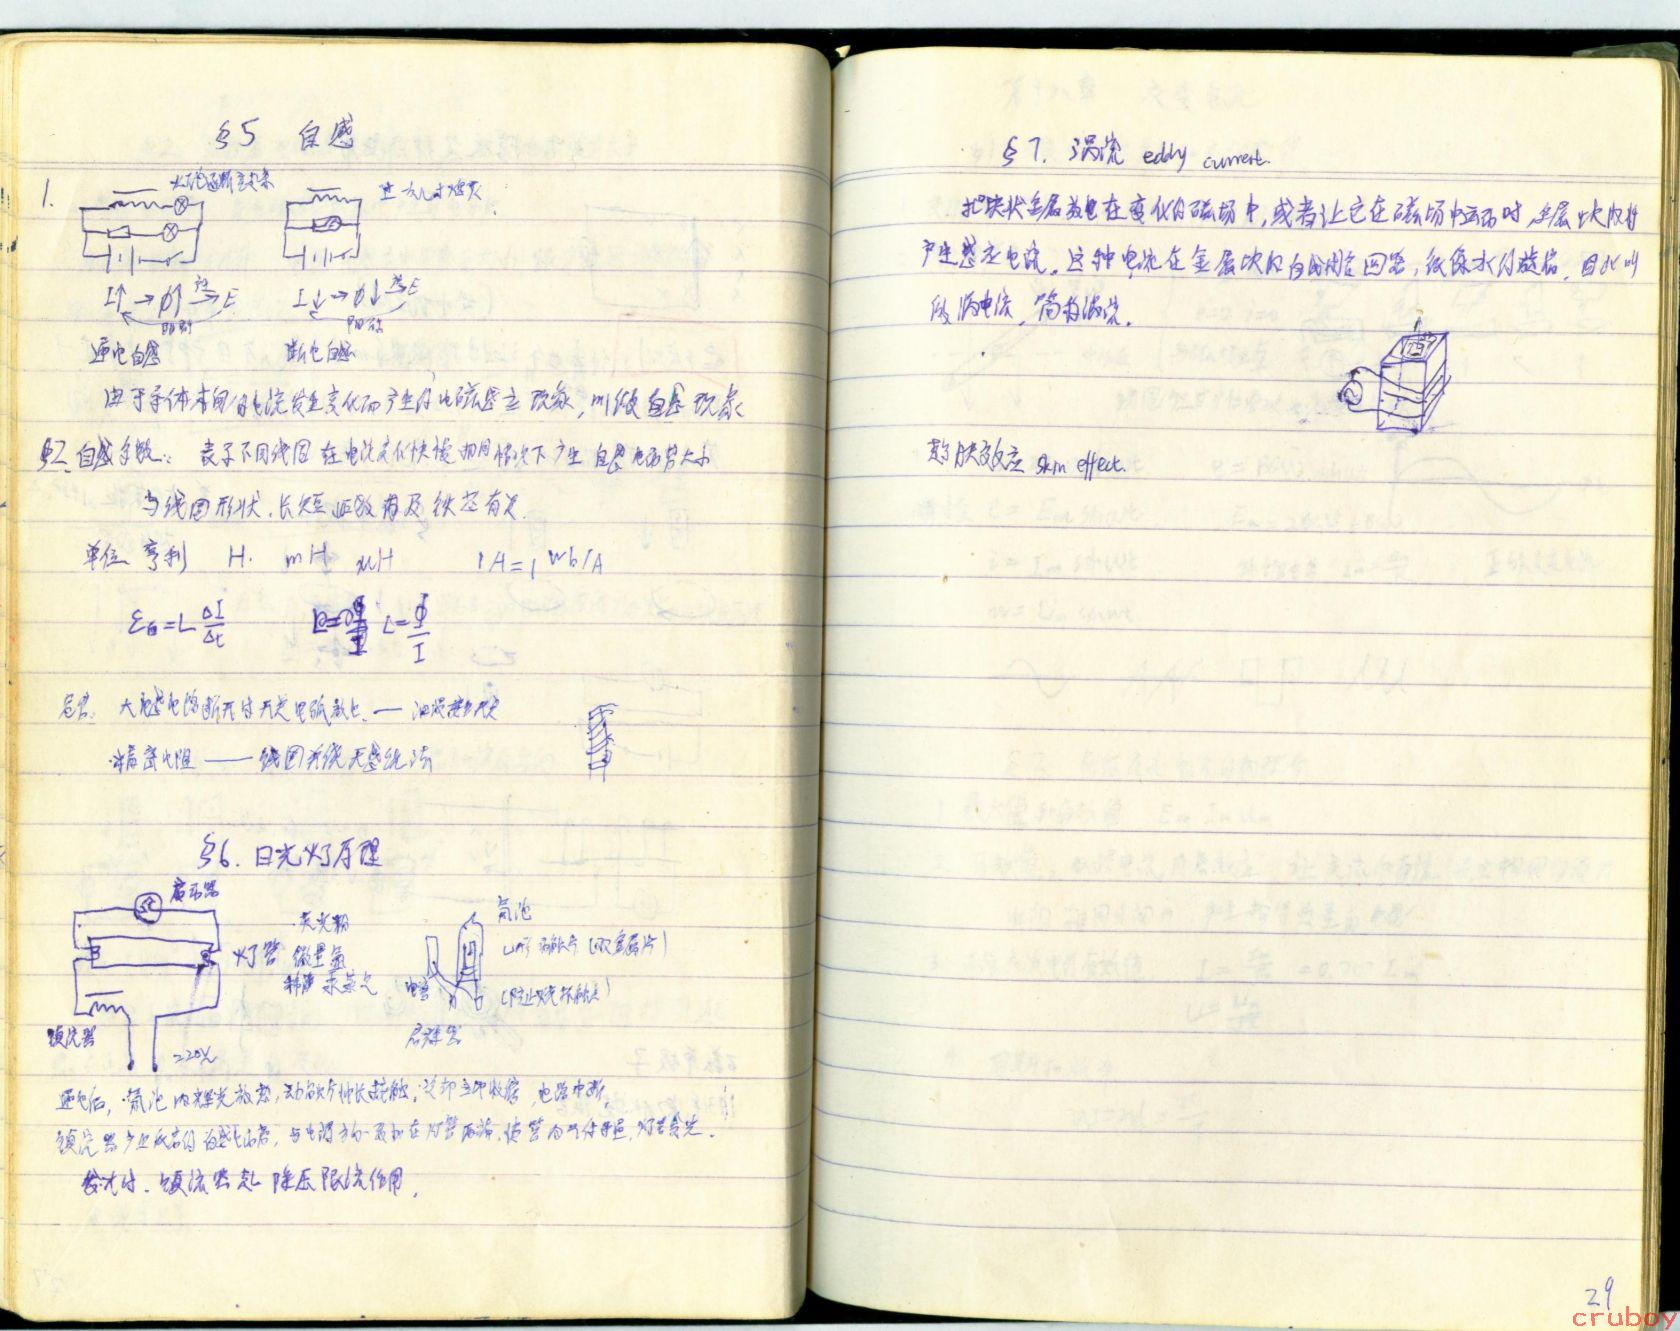 §5 自感
1.
I↑→φ↑→E
I↓→φ↓→E
阻碍
阻碍
通电自感 断电自感
由于导体本身的电流发生变化而产生的电磁感应现象,叫做自感现象
2. 自感系数: 表示不同线圈在电流变化快慢相同情况下产生自感电动势大小
与线圈形状、长短、匝数有及铁芯有关
单位 亨利 H. mH μH 1H=1Wb/A
ε自=L ΔI/Δt L=Φ/I
危害: 大电感电路断开时开关电弧
精密电阻——线圈 无感绕法
§6. 日光灯原理
启动器
荧光粉
灯管 微量氩
稀薄汞蒸气
镇流器
220V
氖泡
U形动触片(双金属片)
电容
启动器
通电后,氖泡内辉光放热,动触片伸长接触,冷却立即收缩,电路中断,
镇流器产生很高的自感电动势,与电源方向一致加在灯管两端,使管内气体导通,灯管发光.
发光时,镇流器起降压限流作用.
§7. 涡流 eddy current.
把块状金属放在变化的磁场中,或者让它在磁场中运动时,金属块内将
产生感应电流,这种电流在金属块内自成闭合回路,很像水的旋涡,因此叫
做涡电流,简称涡流.
趋肤效应 skin effect.
29
cruboy